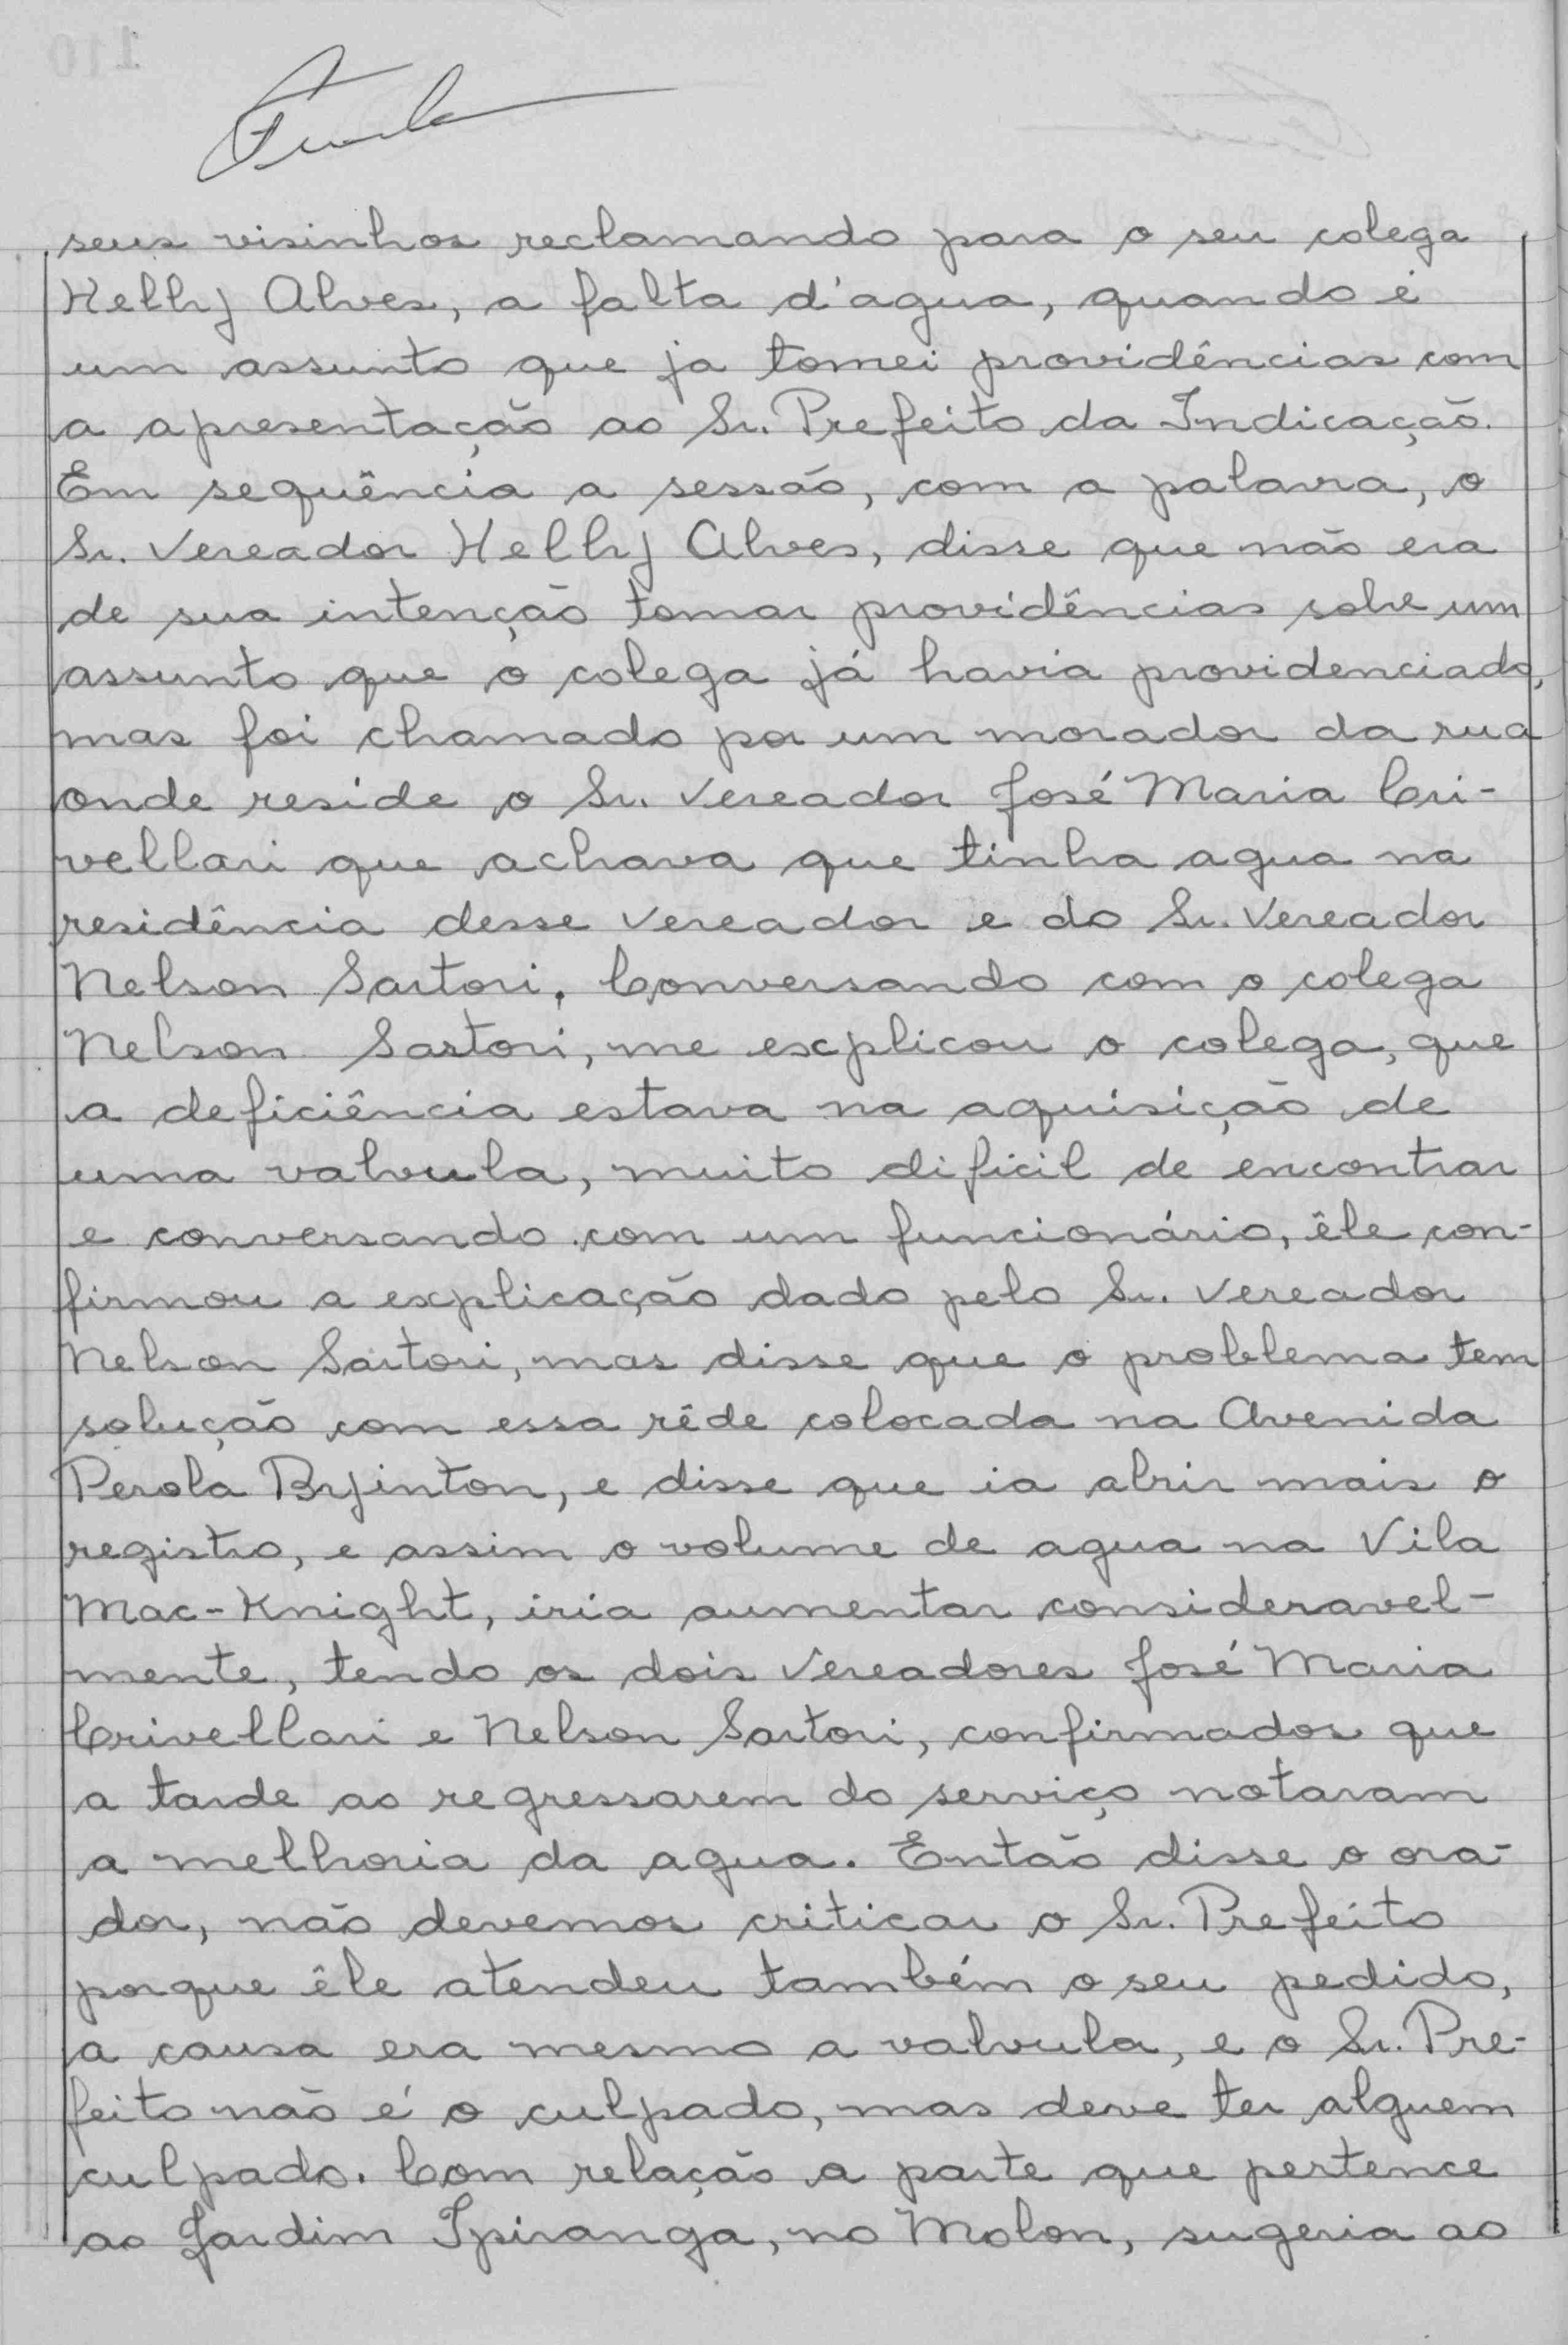 seus visinhos reclamando para o seu colega
Helly Alves, a falta d'agua, quando é
um assunto que ja tomei providências com
a apresentação ao Sr. Prefeito da Indicação.
Em sequência a sessão, com a palavra, o
Sr. Vereador Helly Alves, disse que não era
de sua intenção tomar providências sobre um
assunto que o colega já havia providenciado,
mas foi chamado por um morador da rua
onde reside o Sr. Vereador José Maria Cri-
vellari que achava que tinha agua na
residência desse Vereador e do Sr. Vereador
Nelson Sartori. Conversando com o colega
Nelson Sartori, me explicou o colega, que
a deficiência estava na aquisição de
uma valvula, muito dificil de encontrar
e conversando com um funcionário, êle con-
firmou a explicação dado pelo Sr. Vereador
Nelson Sartori, mas disse que o problema tem
solução com essa rêde colocada na Avenida
Perola Byinton, e disse que ia abrir mais o
registro, e assim o volume de agua na Vila
Mac-Knight, iria aumentar consideravel-
mente, tendo os dois Vereadores José Maria
Crivellari e Nelson Sartori, confirmados que
a tarde ao regressarem do serviço notaram
a melhoria da agua. Então disse o ora-
dor, não devemos criticar o Sr. Prefeito
porque êle atendeu também o seu pedido,
a causa era mesmo a valvula, e o Sr. Pre-
feito não é o culpado, mas deve ter alguem
culpado. Com relação a parte que pertence
ao Jardim Ipiranga, no Molon, sugeria ao